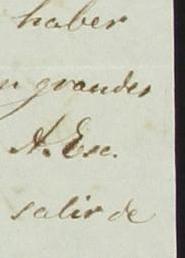 haber
n grandes
A. Exc.
salir de